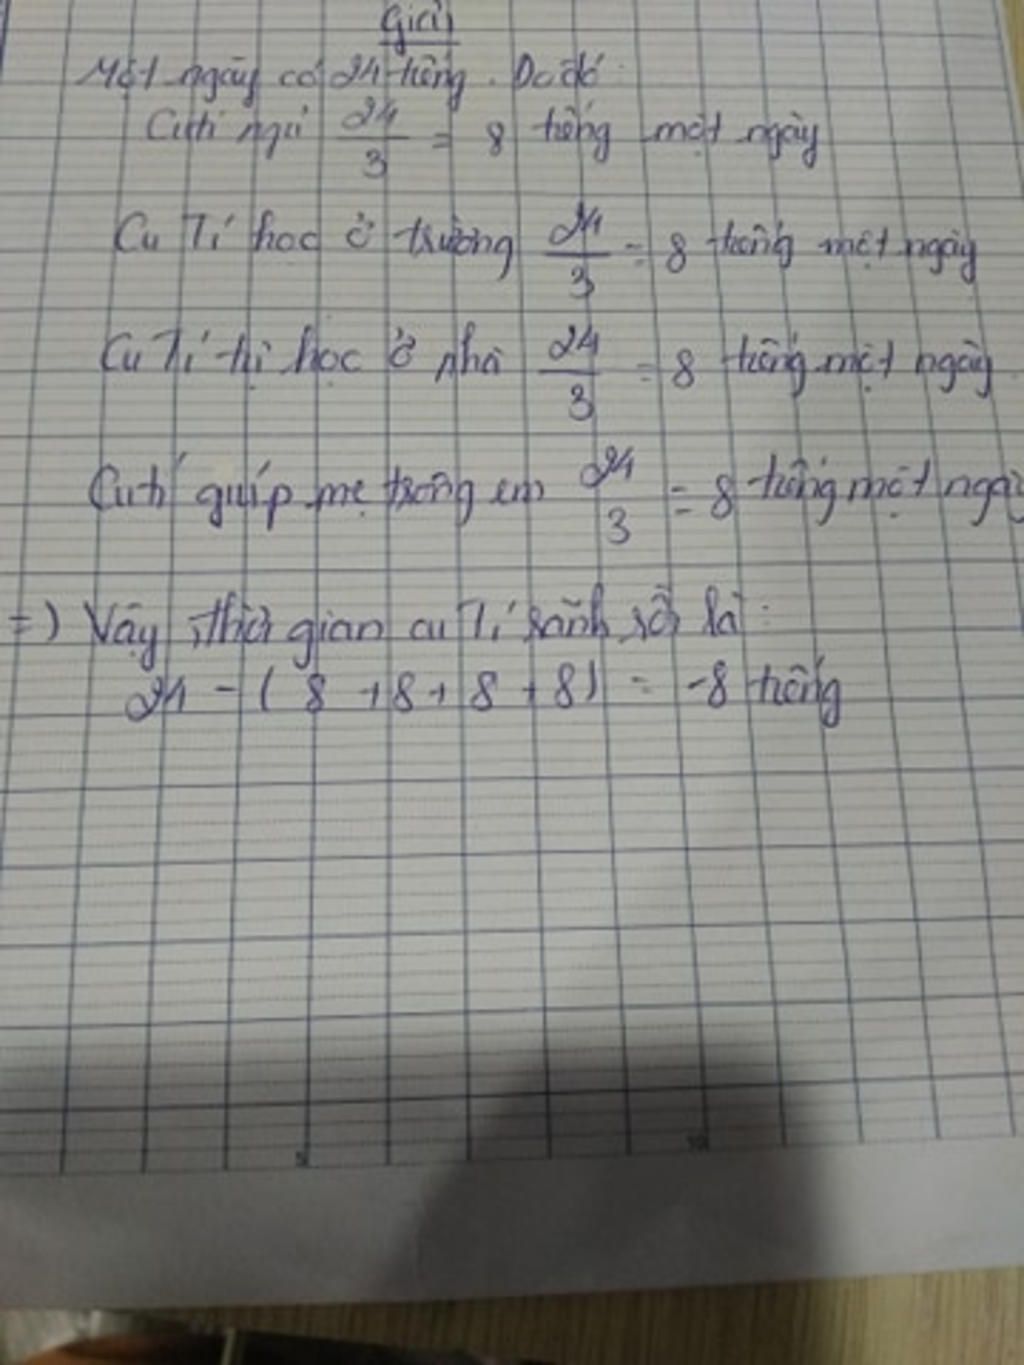 Giải
Một ngày có 24 tiếng. Do đó:
Cu tí ngủ 24/3 = 8 tiếng một ngày
Cu Tí học ở trường 24/3 = 8 tiếng một ngày
Cu Tí tự học ở nhà 24/3 = 8 tiếng một ngày
Cu tí giúp mẹ trông em 24/3 = 8 tiếng một ngày
=) Vậy thời gian cu Tí rảnh rỗi là:
24 - ( 8 + 8 + 8 + 8 ) = -8 tiếng
5
10